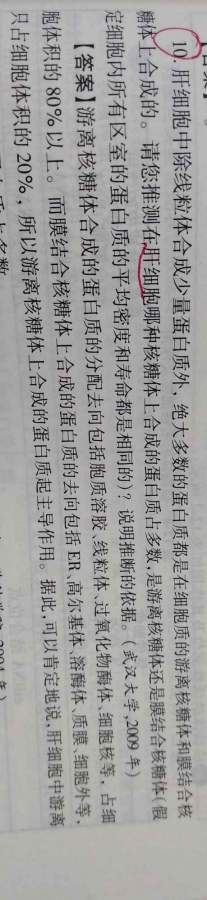 10. 肝细胞中除线粒体合成少量蛋白质外，绝大多数的蛋白质都是在细胞质的游离核糖体和膜结合核
糖体上合成的。请您推测在肝细胞哪种核糖体上合成的蛋白质占多数，是游离核糖体还是膜结合核糖体(假
定细胞内所有区室的蛋白质的平均密度和寿命都是相同的)？说明推断的依据。(武汉大学,2009 年)
【答案】游离核糖体合成的蛋白质的分配去向包括胞质溶胶、线粒体、过氧化物酶体、细胞核等，占细
胞体积的 80％以上。而膜结合核糖体上合成的蛋白质的去向包括 ER、高尔基体、溶酶体、质膜、细胞外等，
只占细胞体积的 20％，所以游离核糖体上合成的蛋白质起主导作用。据此，可以肯定地说，肝细胞中游离